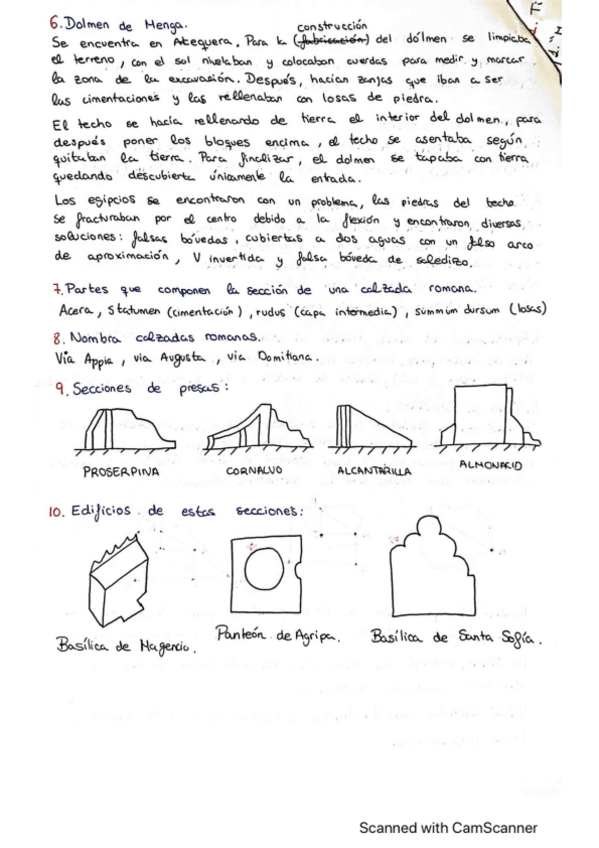 6. Dolmen de Menga.
construcción
Se encuentra en Atequera. Para la (fabricación) del dólmen se limpiaba
el terreno, con el sol nivelaban y colocaban cuerdas para medir y marcar
la zona de la excavasión. Después, hacían zanjas que iban a ser
las cimentaciones y las rellenaban con losas de piedra.
El techo se hacía rellenando de tierra el interior del dolmen, para
después poner los bloques encima, el techo se asentaba según
quitaban la tierra. Para finalizar, el dolmen se tapaba con tierra
quedando descubierta únicamente la entrada.
Los egipcios se encontraron con un problema, las piedras del techo
se fracturaban por el centro debido a la flexión y encontraron diversas
soluciones: falsas bóvedas, cubiertas a dos aguas con un falso arco
de aproximación, V invertida y falsa bóveda de saledizo.
7. Partes que componen la sección de una calzada romana.
Acera, Statumen (cimentación), rudus (capa intermedia), summum dursum (losas)
8. Nombra calzadas romanas.
Vía Appia, via Augusta, via Domitiana.
9. Secciones de presas:
PROSERPINA CORNALVO ALCANTARILLA ALMONACID
10. Edificios de estas secciones:
Basílica de Magencio. Panteón de Agripa. Basílica de Santa Sofía.
Scanned with CamScanner